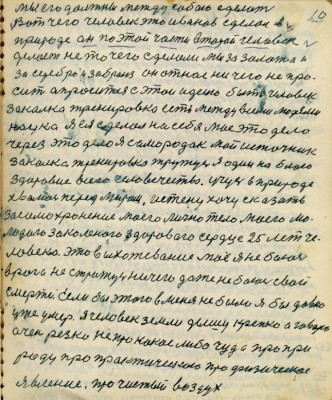 мы его должны между собою сделат 20
Вот чего человек это иванов сделал в
природе он по этой части второй человек и
делает не то чего сделали мы за золото и
за серебро и забрали он от нас ни чего не про-
сит а просится с этой идеею быть человек
закалка тренировка есть между всеми людями
наука Я её сделал на себя мое это дело
через это дело я самородак мой источник
закалка тренировка тружус Я один на благо
здоровие всего человечество. учус в природе
хвалюс перед миром, истену хочу сказать
за само хронение моего личного тело моего мо-
лодого закаленого здорового сердце 25 лет че-
ловека. это выхотевание мое Я не боюс
врага не страшус ничего даже не боюс свой
смерти. Если бы этого в меня не было Я бы давно
уже умер. Я человек земли дышу крепко а говорю
очен резко не про какое либо чудо про при
роду про практическое про физическое
явление. про чистый воздух